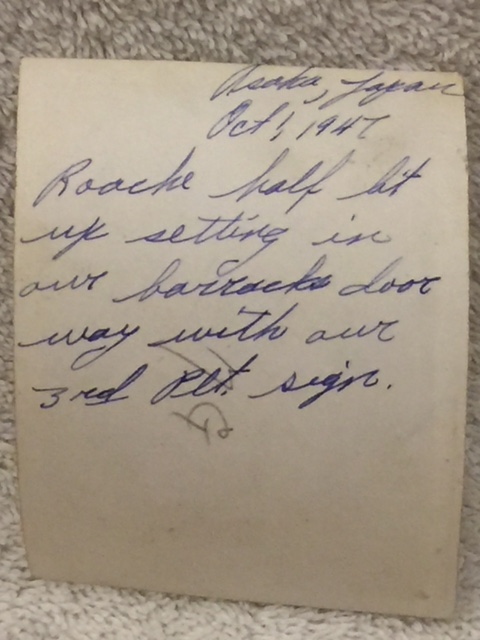 Osaka, Japan
Oct 1, 1947
Roache half lit
up setting in
our barracks door
way with our
3rd Plt. sign.